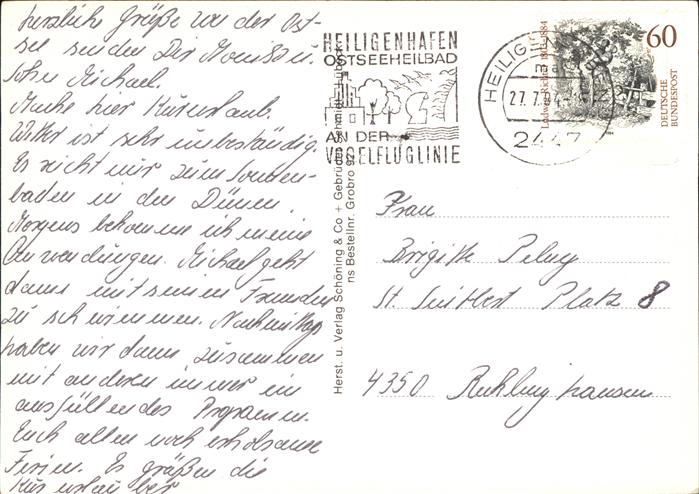 herzliche Grüße von der Ost-
see senden Dir Monissu.
Sohn Michael.
Mache hier Kururlaub.
Wetter ist sehr unbeständig.
Es reicht nur zum Sonnen-
baden in den Dünen.
Morgens bekomme ich meine
Anwendungen. Michael geht
dann mit seinen Freunden
zu schwimmen. Nachmittags
haben wir dann zusammen
mit anderen immer ein
ausfüllendes Programm.
Euch allen noch erholsame
Ferien. Es grüßen die
Kururlauber
HEILIGENHAFEN
OSTSEEHEILBAD
AN DER
VOGELFLUGLINIE
HEILIGEN
27.7.8
2447
Ludwig Richter 1803-1884
60
DEUTSCHE
BUNDESPOST
Herst. u. Verlag Schöning & Co + Gebrüder Schmidt, Lübeck
ns Bestellnr. Grobro 92
Frau
Brigitte Pelny
St. Suitbert Platz 8
4350 Recklinghausen